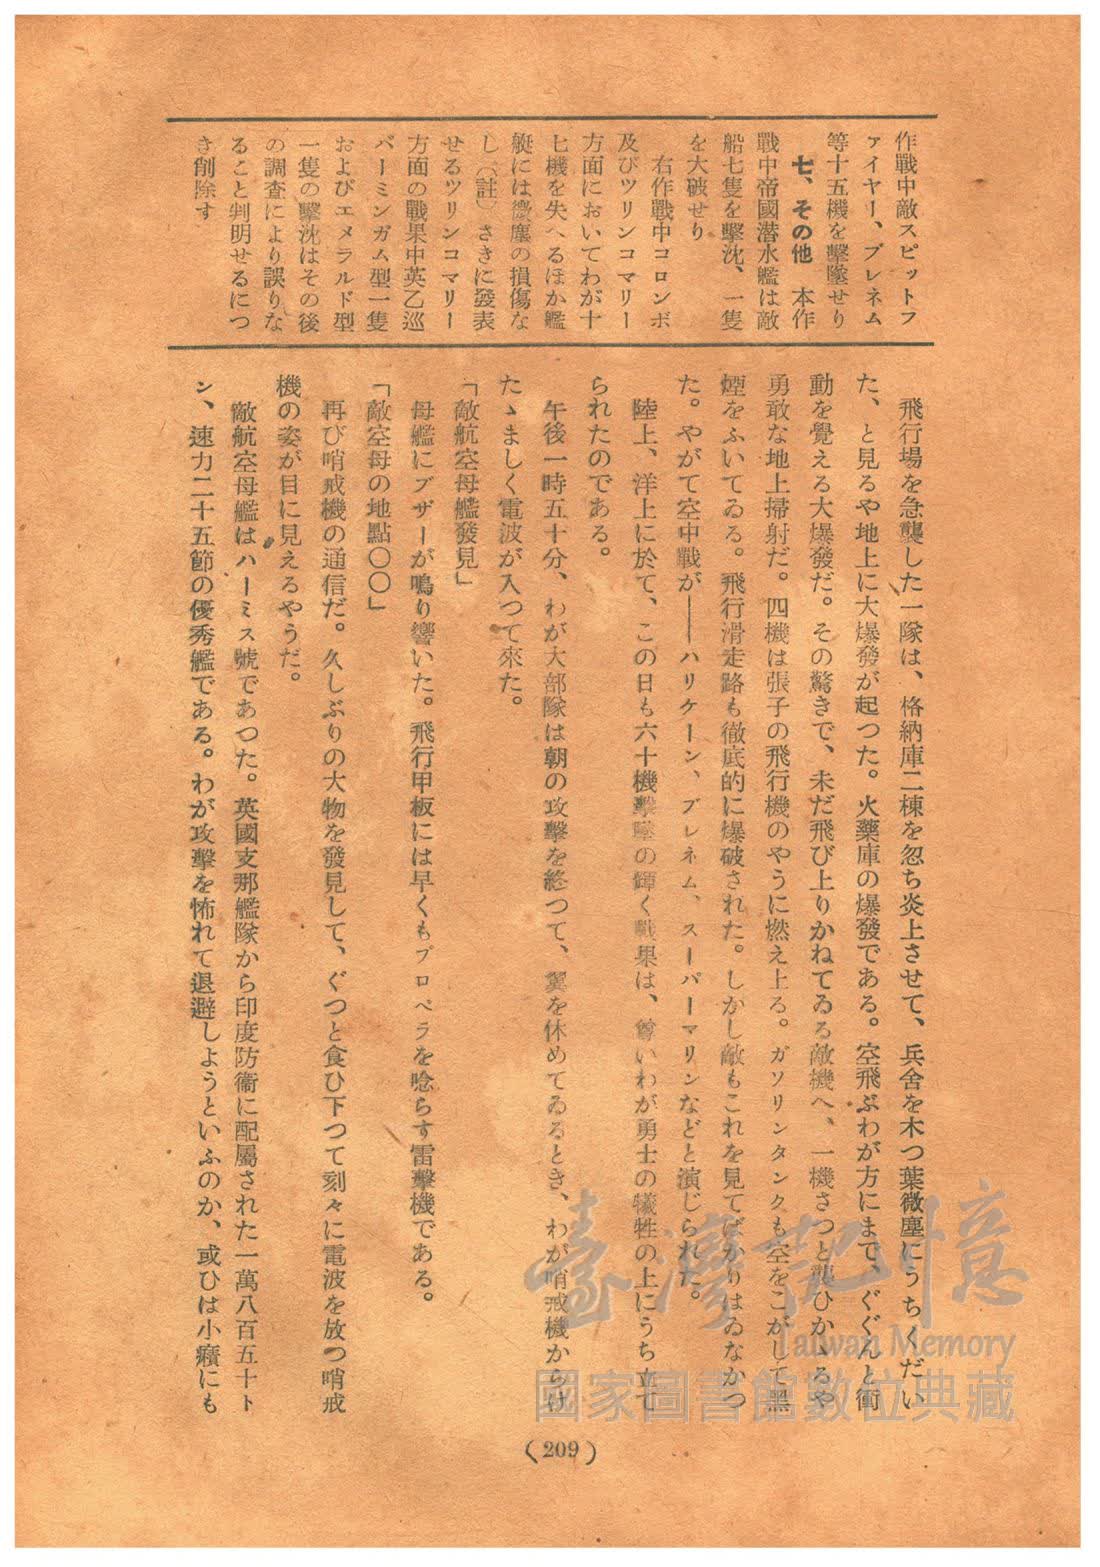 作戰中敵スピットフ
ァイヤー、ブレネム
等十五機を擊墜せり
七、その他　本作
戰中帝國潜水艦は敵
船七隻を擊沈、一隻
を大破せり
右作戰中コロンボ
及びツリンコマリー
方面においてわが十
七機を失へるほか艦
艇には微塵の損傷な
し（註）さきに發表
せるツリンコマリー
方面の戰果中英乙巡
バーミンガム型一隻
およびエメラルド型
一隻の擊沈はその後
の調査により誤りな
ること判明せるにつ
き削除す
飛行場を急襲した一隊は、格納庫二棟を忽ち炎上させて、兵舍を木つ葉微塵にうちくだい
た、と見るや地上に大爆發が起つた。火藥庫の爆發である。空飛ぶわが方にまで、ぐぐんと衝
動を覺える大爆發だ。その驚きで、未だ飛び上りかねてゐる敵機へ、一機さつと襲ひかゝるや
勇敢な地上掃射だ。四機は張子の飛行機のやうに燃え上る。ガソリンタンクも空をこがして黑
煙をふいてゐる。飛行滑走路も徹底的に爆破された。しかし敵もこれを見てばかりはゐなかつ
た。やがて空中戰が――ハリケーン、ブレネム、スーパーマリンなどと演じられた。
陸上、洋上に於て、この日も六十機擊墜の輝く戰果は、尊いわが勇士の犧牲の上にうち立て
られたのである。
午後一時五十分、わが大部隊は朝の攻擊を終つて、翼を休めてゐるとき、わが哨戒機からけ
たゝましく電波が入つて來た。
「敵航空母艦發見」
母艦にブザーが鳴り響いた。飛行甲板には早くもプロペラを唸らす雷擊機である。
「敵空母の地點〇〇」
再び哨戒機の通信だ。久しぶりの大物を發見して、ぐつと食ひ下つて刻々に電波を放つ哨戒
機の姿が目に見えるやうだ。
敵航空母艦はハーミス號であつた。英國支那艦隊から印度防衞に配屬された一萬八百五十ト
ン、速力二十五節の優秀艦である。わが攻擊を怖れて退避しようといふのか、或ひは小癪にも
(209)
臺灣記憶
Taiwan Memory
國家圖書館數位典藏